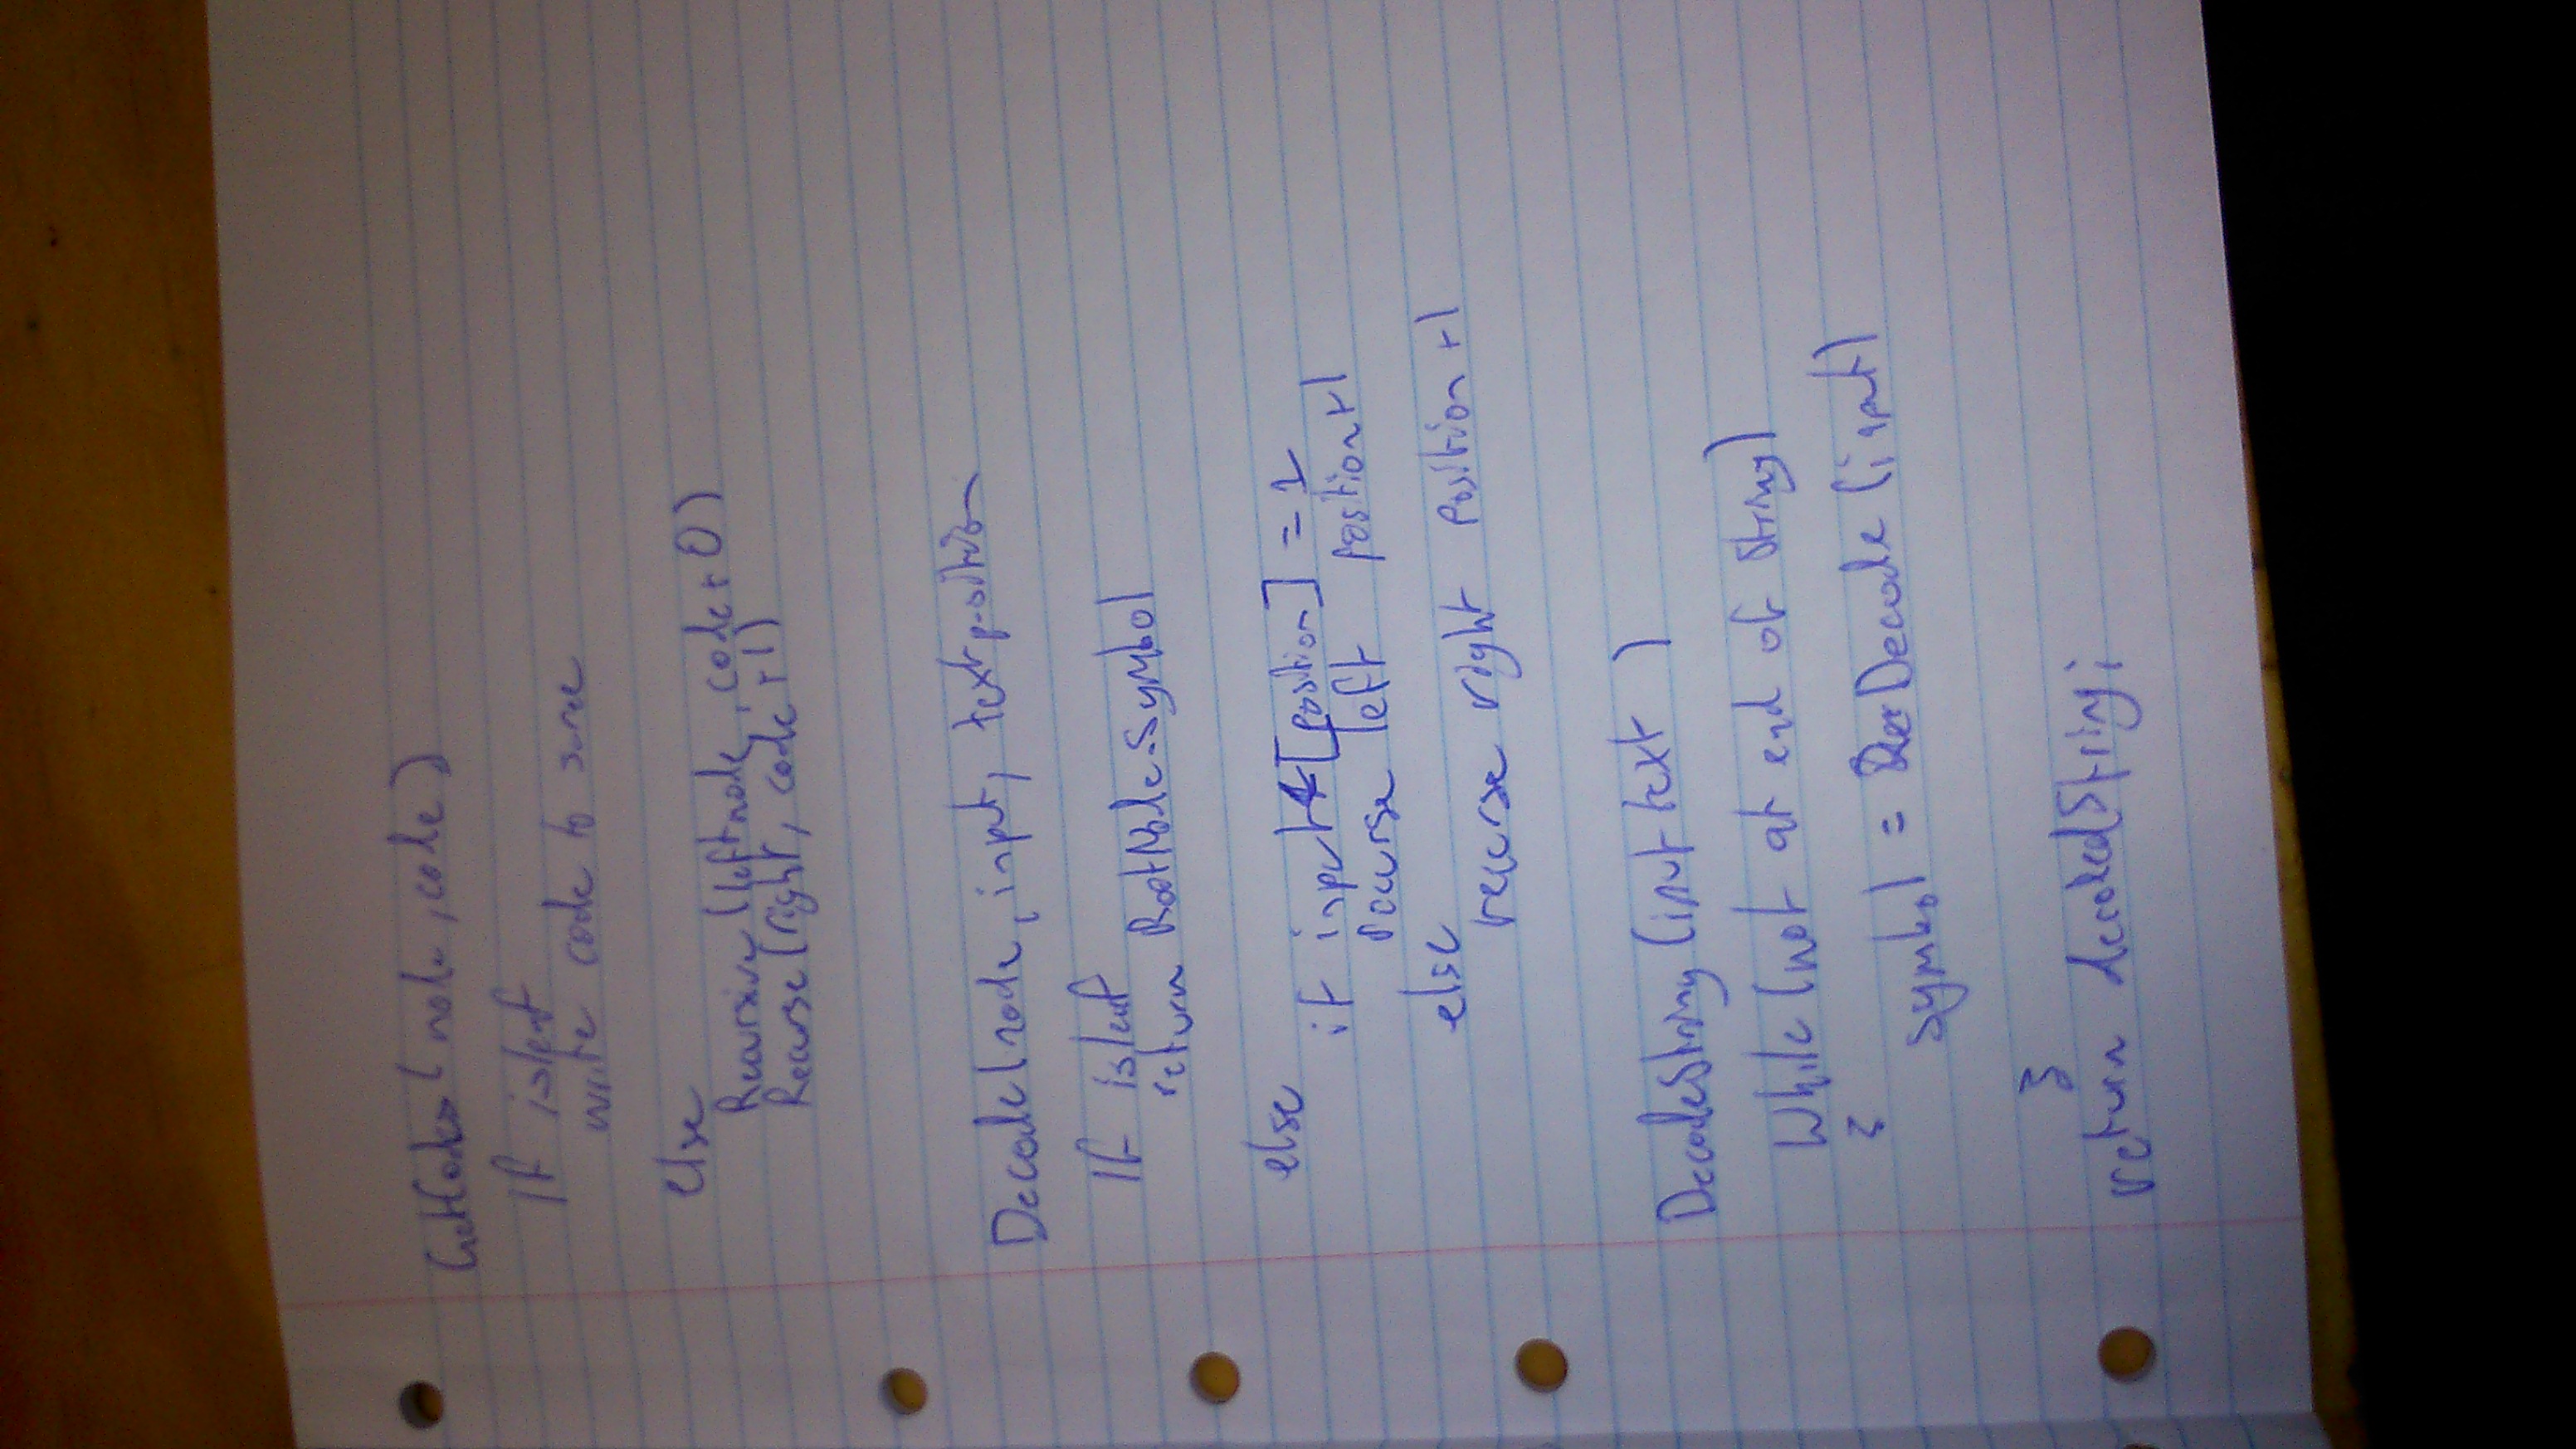 GetCodes(node, code)
If isleaf
write code to
else
Recursive(leftnode, code+0)
Recurse(right, code+1)
Decode(node, input, textposition
If isleaf
return RootNode.symbol
else
if input[position] = 1
recurse left position+1
else
recurse right position+1
DecodeString(input text )
While(not at end of string)
{
symbol = Decode(input)
}
return decodedString;